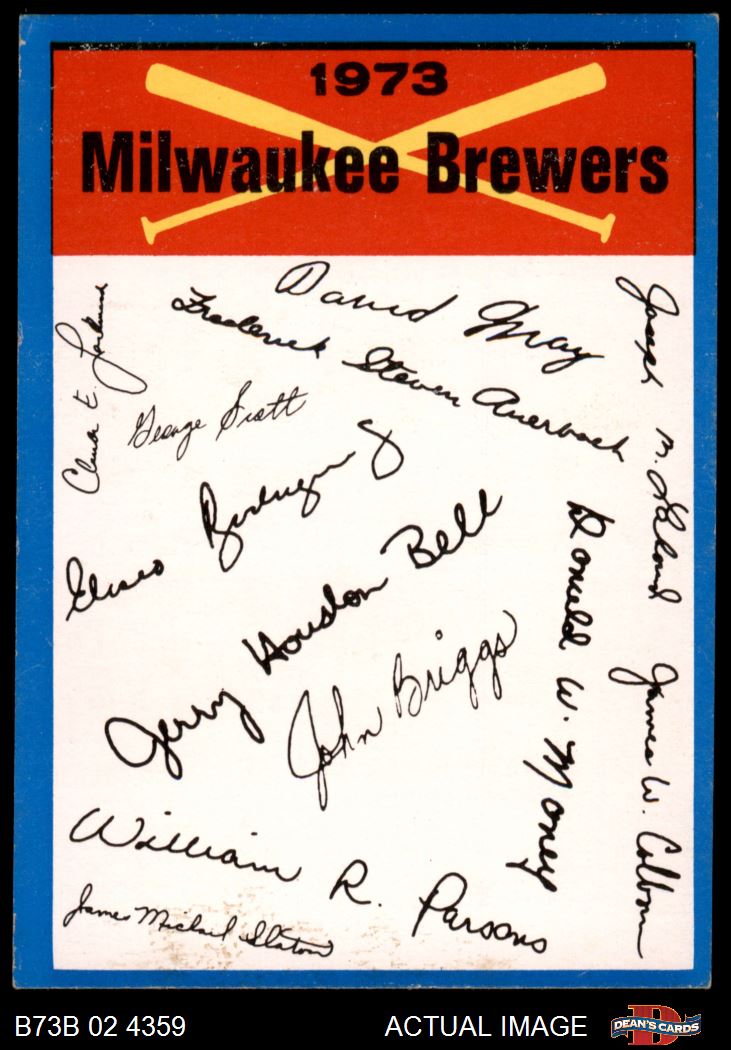 1973
Milwaukee Brewers
David May
Frederick Steven Auerbach
Joseph M.
George Scott
Eliseo Rodriguez
Jerry Houston Bell
John Briggs
Donald W. Money
James W. Colborn
William R. Parsons
James Michael Slaton
B73B 02 4359
ACTUAL IMAGE
DEAN'S CARDS